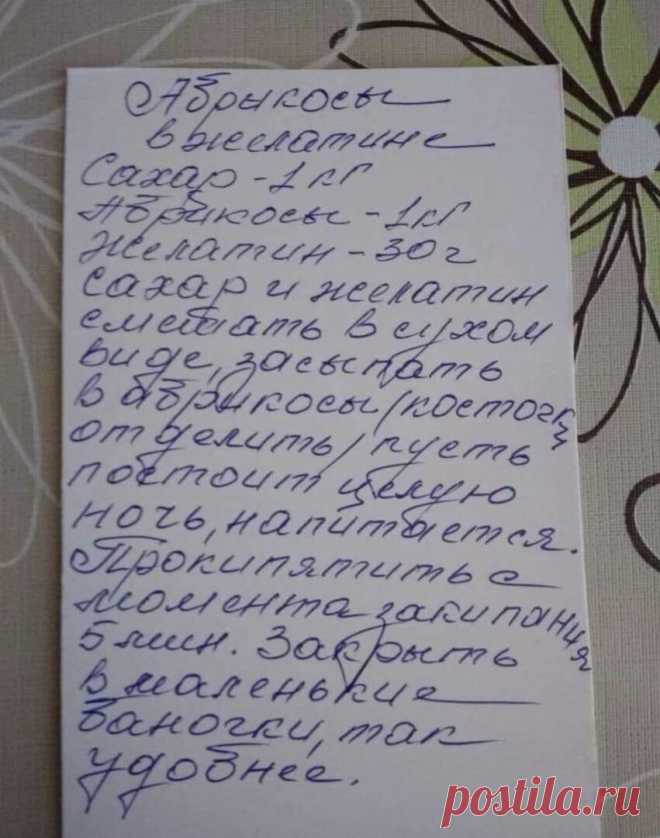 Абрикосы
в желатине
Сахар - 1 кг
Абрикосы - 1 кг
Желатин - 30 г
Сахар и желатин
смешать в сухом
виде, засыпать
в абрикосы /косточки
отделить/ пусть
постоит целую
ночь, напитается.
Прокипятить с
момента закипания
5 мин. Закрыть
в маленькие
баночки, так
удобнее.
postila.ru